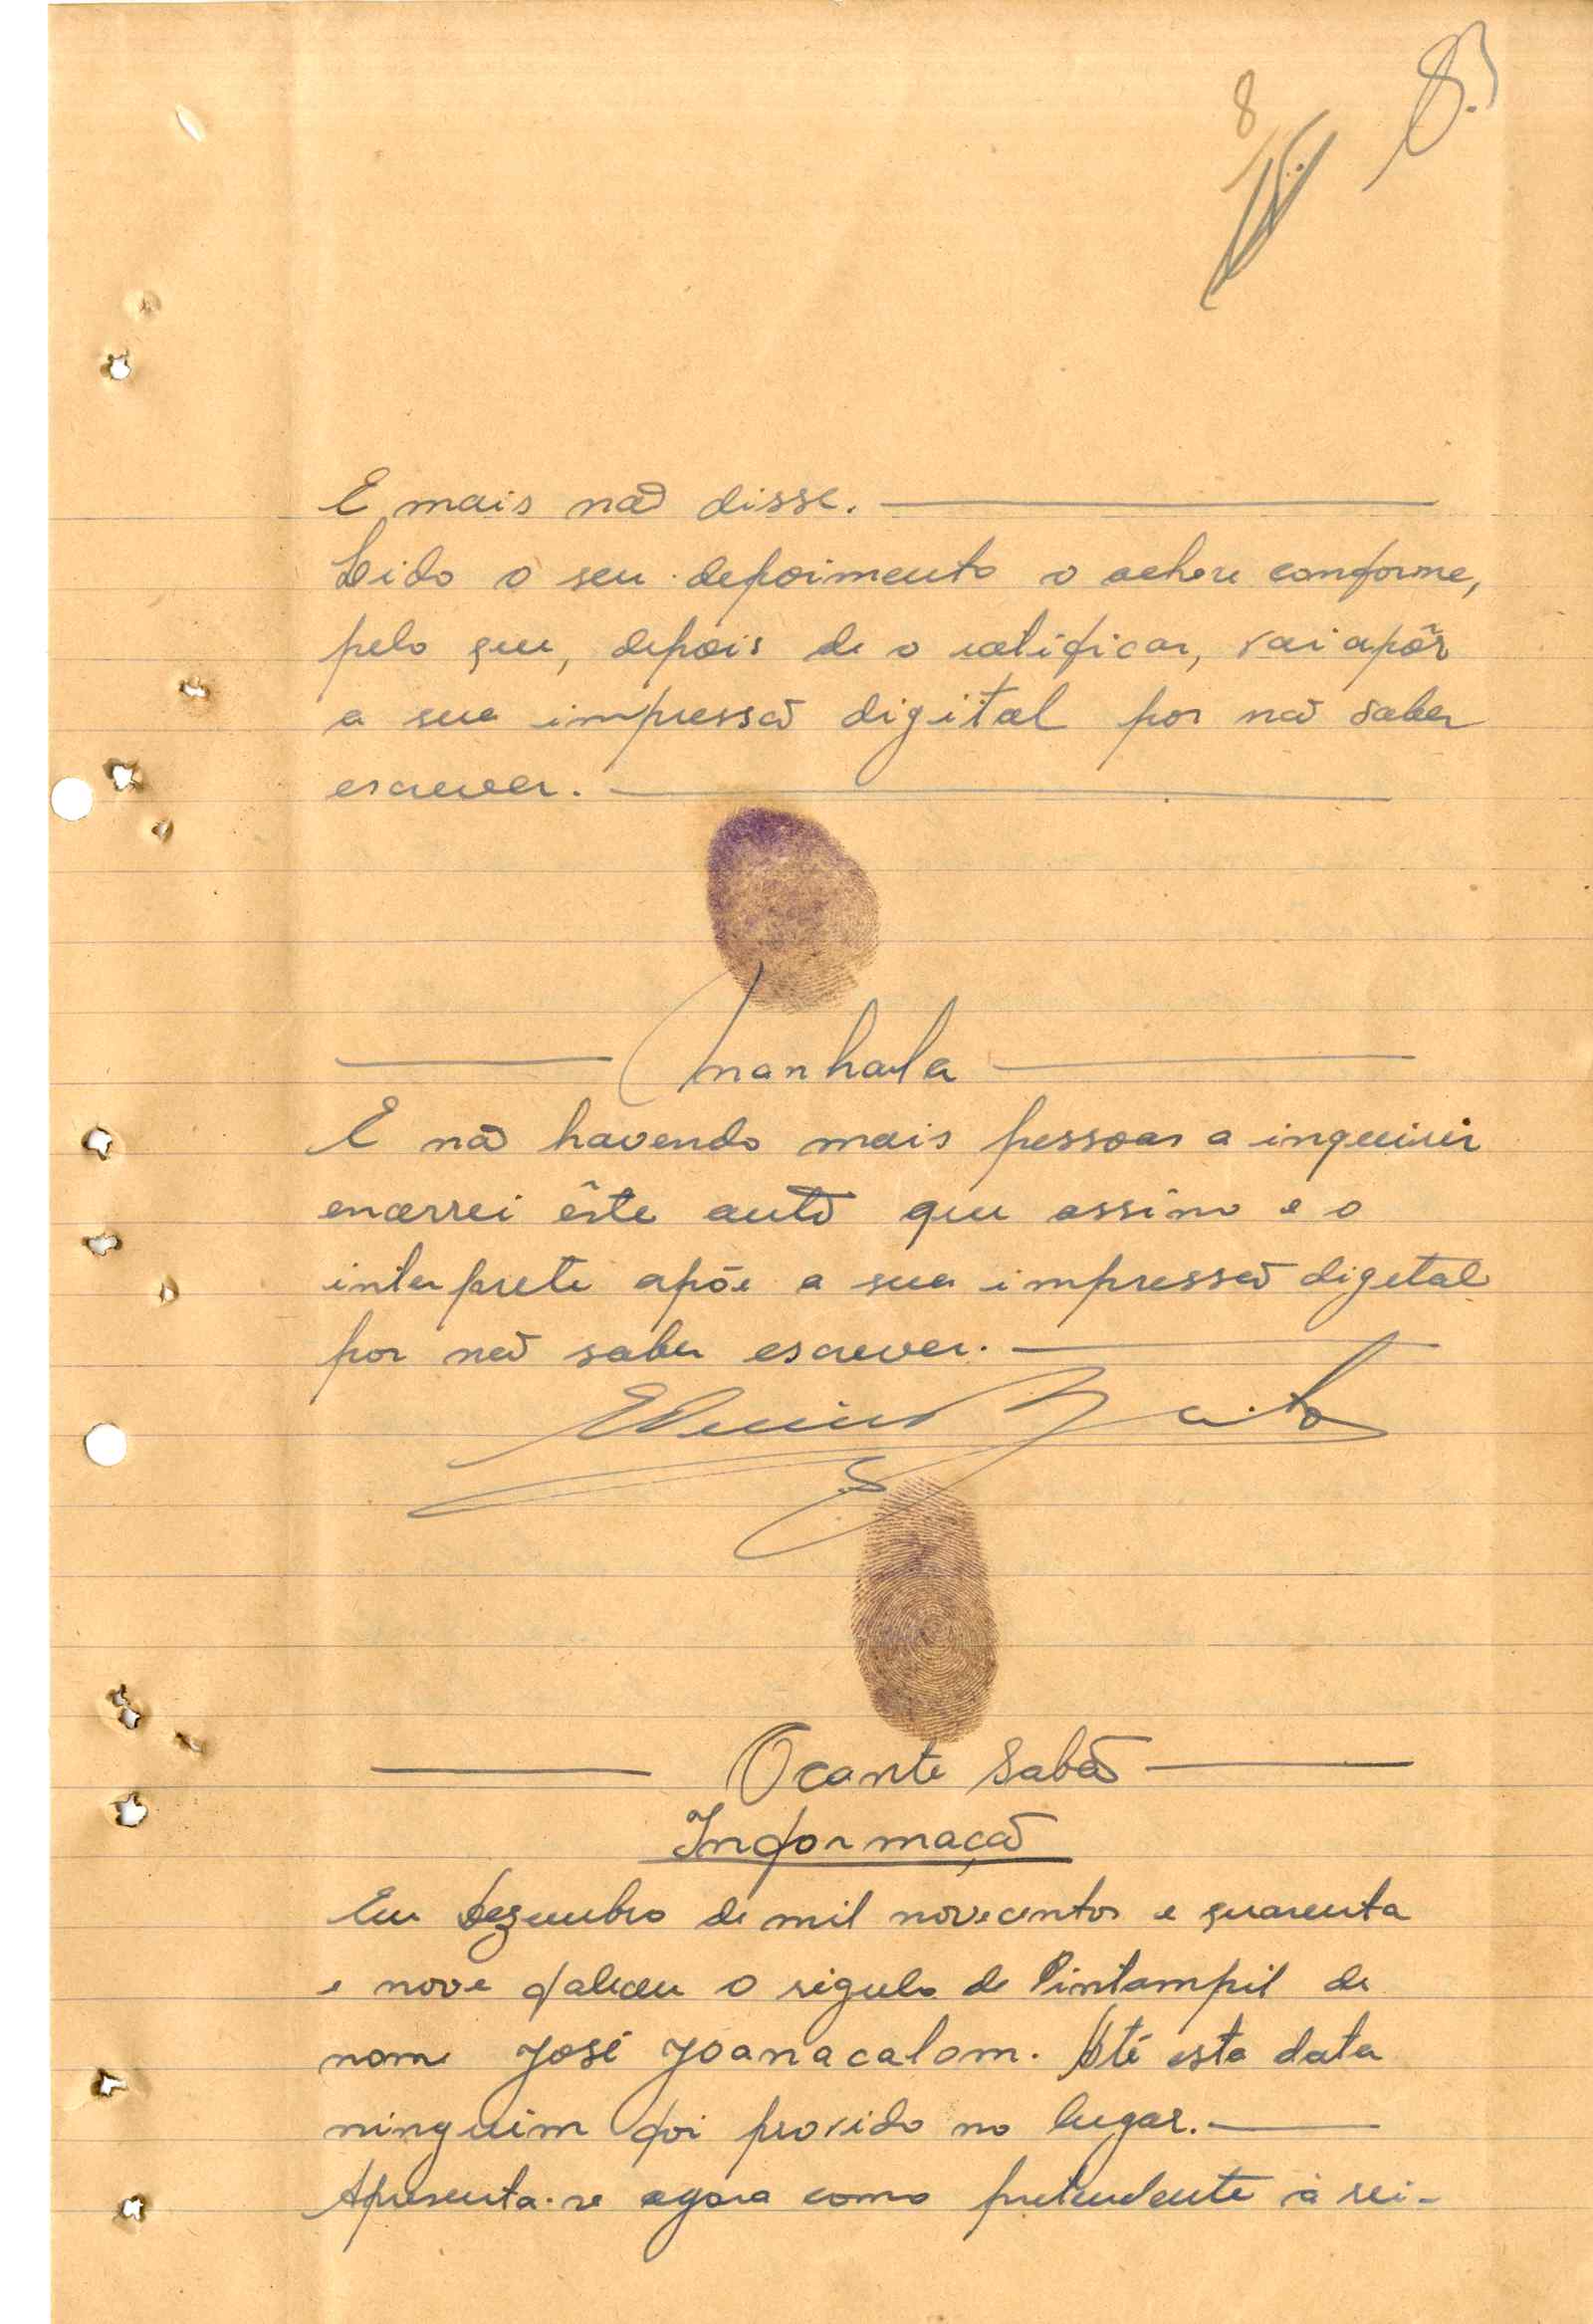 8
8.
E mais não disse.
Lido o seu depoimento o achou conforme,
pelo que, depois de o ratificar, vai apôr
a sua impressão digital por não saber
escrever.
nanhala
E não havendo mais pessoas a inquirir
encerrei êste auto que assino e o
interprete apõe a sua impressão digital
por não saber escrever.
Ocante Sabão
Informação
Em Dezembro de mil novecentos e quarenta
e nove faleceu o régulo de Pintampil de
nome José Joanacalom. Até esta data
ninguém foi provido no lugar.
Apresenta-se agora como pretendente à rei-